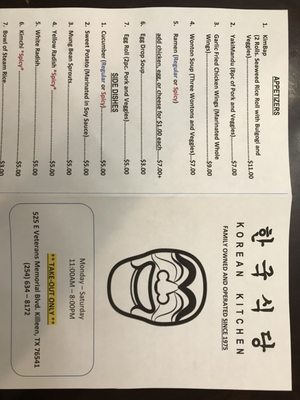 APPETIZERS
1. KimBap
(2 Rolls. Seaweed Rice Roll with Bulgogi and
Veggies)...$11.00
2. YakiMandu (8pcs of Pork and Veggies)...$7.00
3. Garlic Fried Chicken Wings (Marinated Whole
Wings)...$9.00
4. Wonton Soup (Three Wontons and Veggies)...$7.00
5. Ramen (Regular or Spicy)
add chicken, egg, or cheese for $1.00 each...$7.00+
6. Egg Drop Soup...$3.00
7. Egg Roll (2pc. Pork and Veggies)...$5.00
SIDE DISHES
1. Cucumber (Regular or Spicy)...$5.00
2. Sweet Potato (Marinated in Soy Sauce)...$5.00
3. Mung Bean Sprouts...$5.00
4. Yellow Radish *Spicy*...$5.00
5. White Radish...$5.00
6. Kimchi *Spicy*...$5.00
7. Bowl of Steam Rice...$3.00
한국식당
KOREAN KITCHEN
FAMILY OWNED AND OPERATED SINCE 1975
Monday – Saturday
11:00AM – 8:00PM
** TAKE-OUT ONLY **
525 E Veterans Memorial Blvd. Killeen, TX 76541
(254) 634 – 8172